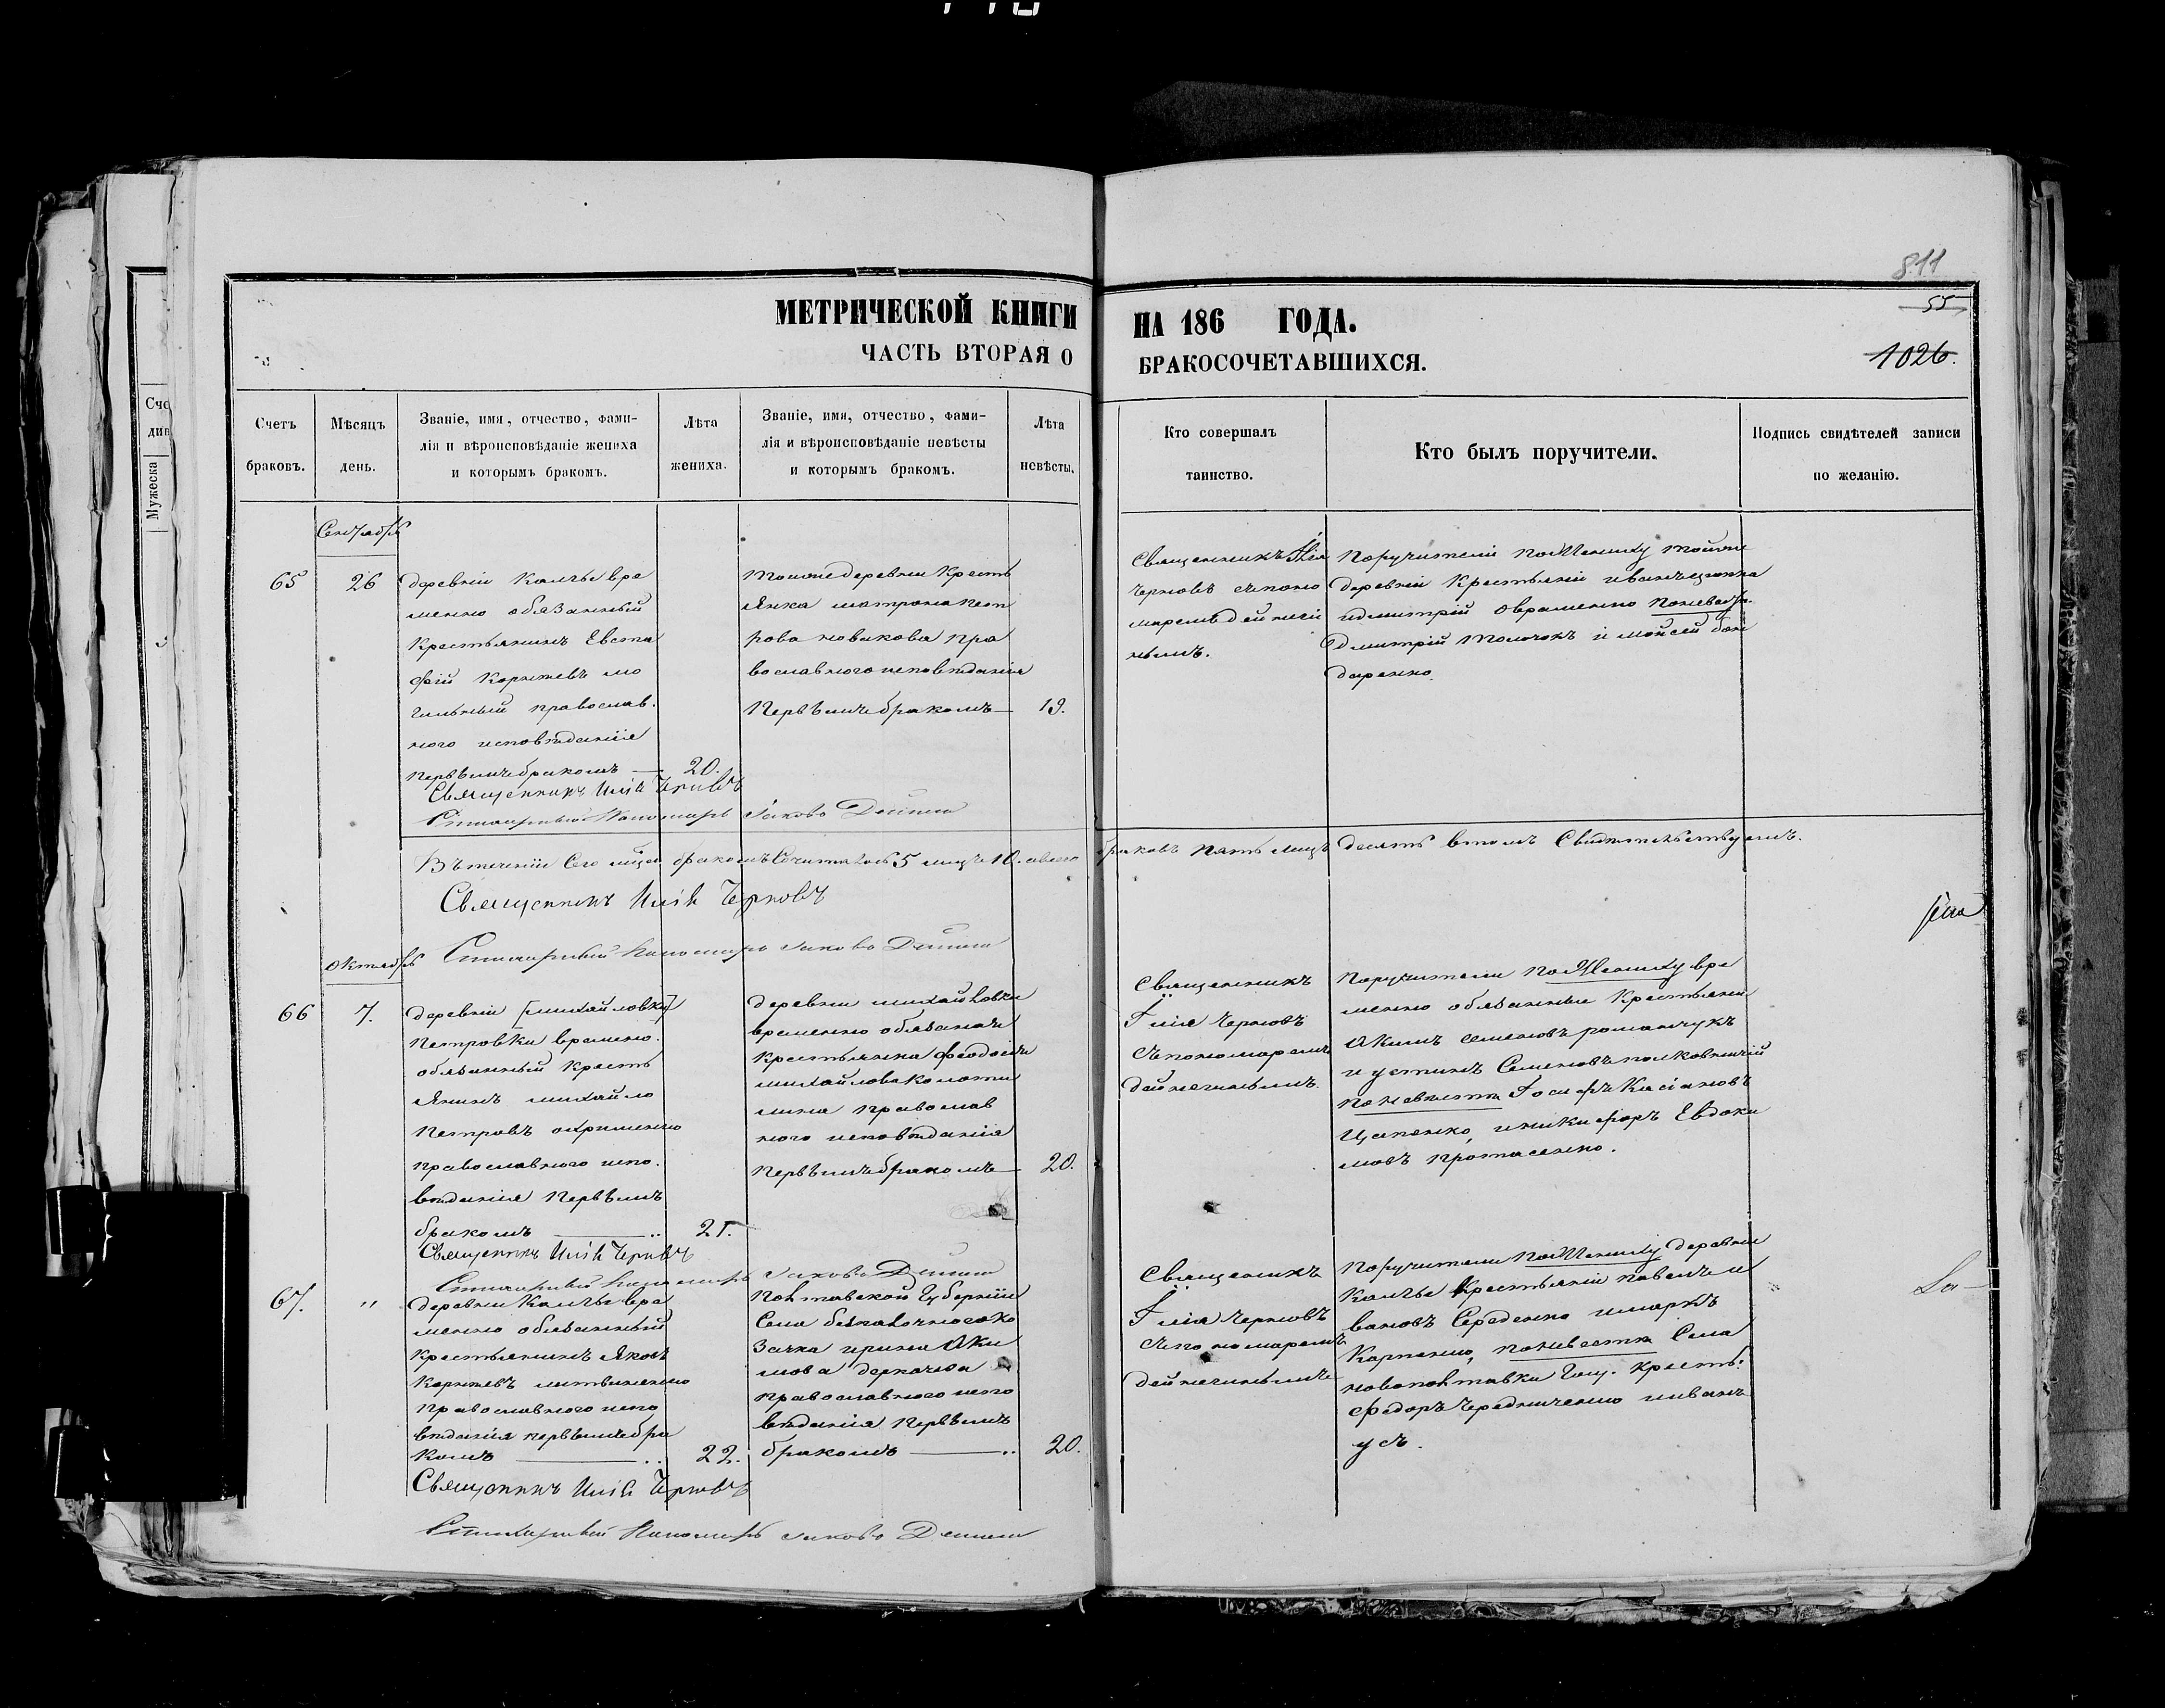 811
55
1026.
МЕТРИЧЕСКОЙ КНИГИ НА 186 ГОДА.
ЧАСТЬ ВТОРАЯ О БРАКОСОЧЕТАВШИХСЯ.
Счетъ
браковъ.
Мѣсяцъ
день.
Званіе, имя, отчество, фами-
лія и вѣроисповѣданіе жениха
и которымъ бракомъ.
Лѣта
жениха.
Званіе, имя, отчество, фами-
лія и вѣроисповѣданіе невѣсты
и которымъ бракомъ.
Лѣта
невѣсты.
Кто совершалъ
таинство.
Кто былъ поручители.
Подпись свидѣтелей записи
по желанію.
Сентябрь
65
26
деревни Камчье вре
менно обязанный
Крестьянинъ Евста
фій Корнѣевъ мо
гильный православ.
ного исповѣданія
первымъ бракомъ
20.
тойже деревни Кресть
янка матрона пет
рова новакова пра
вославного исповѣданія
первымъ бракомъ
19.
Священникъ Илія
Черновъ спономо
маремъ дейнечи
нымъ.
Поручители пожениху тойже
деревни Крестьяни иванъ
идмитрій Овраменко поневѣсте
дмитрій толочокъ и мойсей бон
даренко.
Священникъ Илія Черновъ
Стихарный Пономарь Іаковъ
Въ теченіи Сего мѣсяца бракомъ Сочиталось 5 лицъ 10. авсего браковъ пять лицъ десять втомъ Свидѣтельствуемъ.
Священникъ Илія Черновъ
Стихарный Пономарь Іаковъ
Октябрь
66
7.
деревни [михайловки]
Петровки временно.
обязанный Кресть
янинъ михайло
Петровъ охрименко
православного испо.
вѣданія первымъ
бракомъ
21.
деревни михайловки
временно обязаная
крестьянка феодосія
михайлова коломи
мина православ
ного исповѣданія
первымъ бракомъ
20.
Священникъ
Іилія Черновъ
Спономаремъ
дейнечинымъ.
Поручители пожениху вре
менно обязанные Крестьяни
Акимъ семеновъ романчукъ
и устинъ Семеновъ полковничій
поневѣсти Іосифъ Касіановъ
Цапенко, иникифоръ Евдоки
мовъ протасенко.
Священникъ Илія Черновъ
Стихарный Пономарь Іаковъ
67.
"
деревни Камчье вре
менно обязанный
Крестьянинъ Яковъ
Корнѣевъ литвиненко
Православного испо
вѣданія первымъ бра
комъ
22.
Полтавской Губерніи
Села безпалочного Ко
зачка ирина Аки
мова деркачова
православного испо
вѣданія первымъ
бракомъ
20.
Священникъ
Іилія Черновъ
Спономаремъ
дейнечинымъ
Поручители пожениху деревни
Камчье Крестьяни павелъ и
вановъ Середенко имаркъ
Карпенко, поневести Села
новополтавки Госу. кресть:
федоръ Чередниченко ииванъ
усъ.
Священникъ Илія Черновъ
Стихарный Пономарь Іаковъ